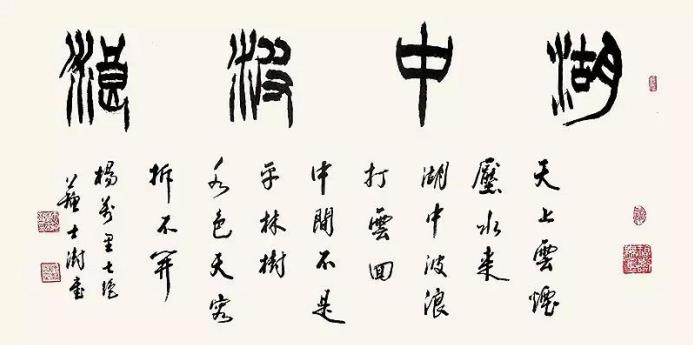 湖中波浪
天上雲煙
壓水來
湖中波浪
打雲回
中間不是
平林樹
水色天容
拆不開
楊萬里七絕
蘇士澍書